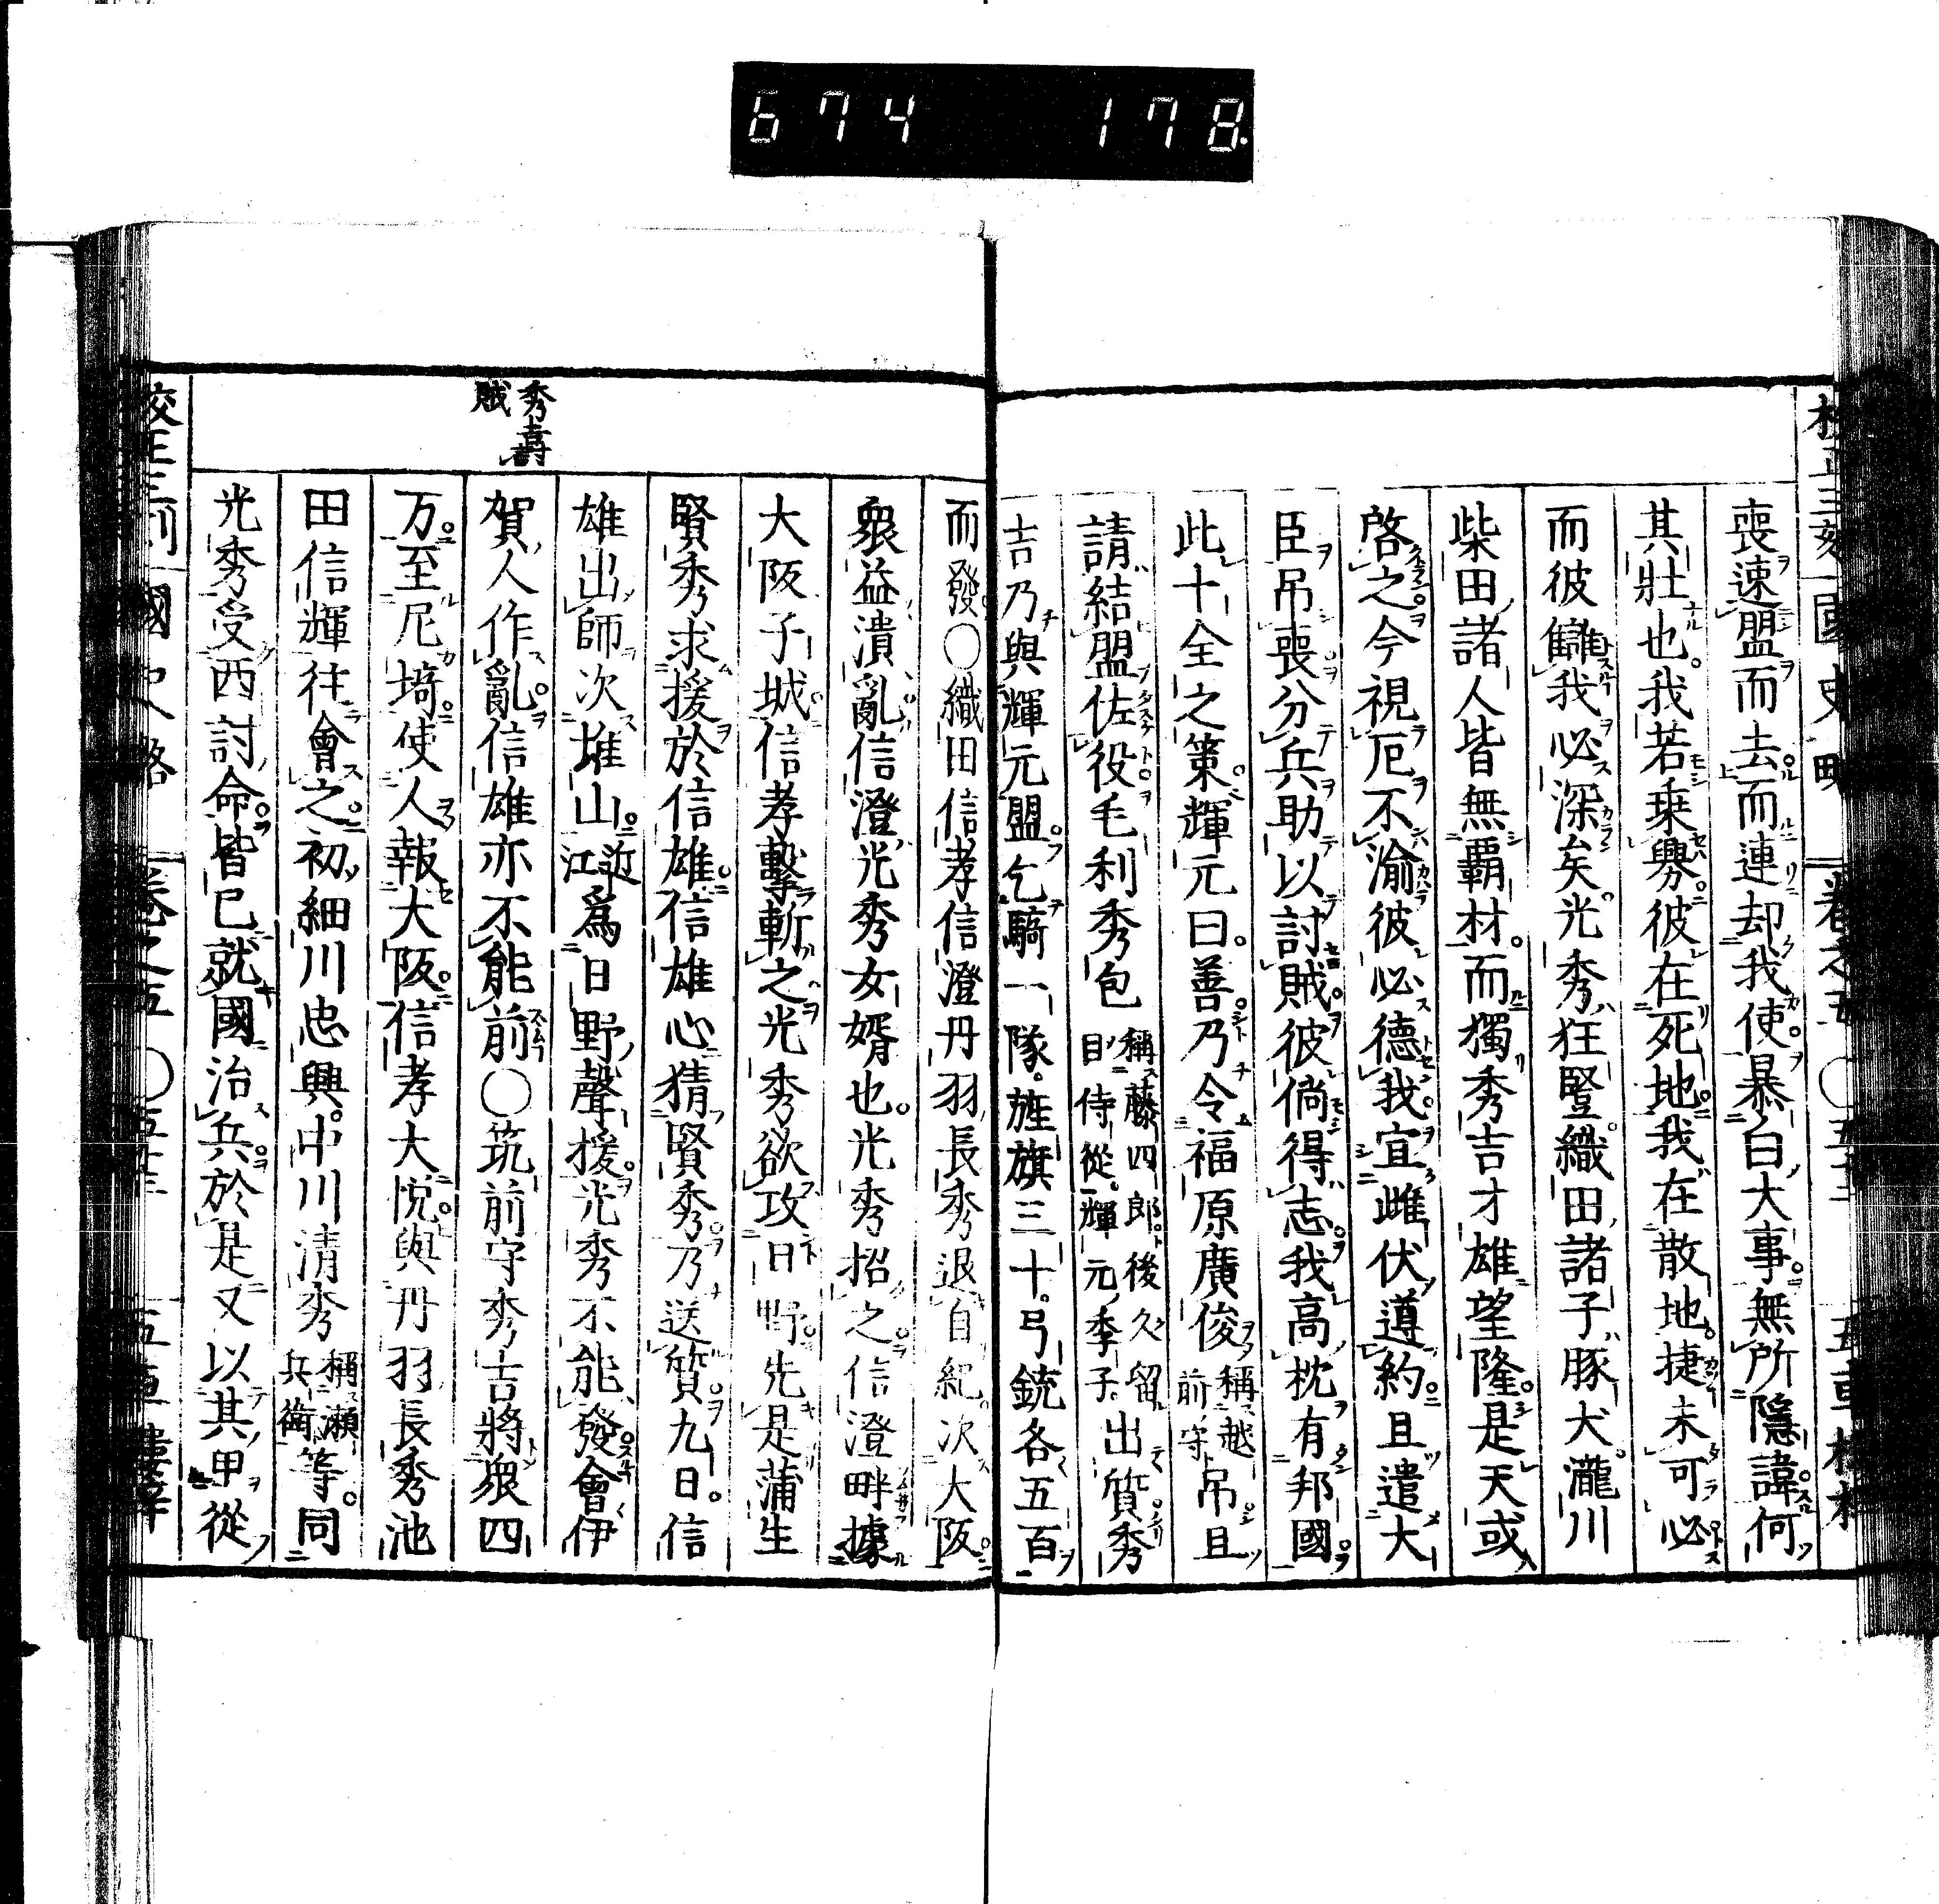 674 178
喪速盟而去而連却我使暴白大事無所隱諱何
其壯也。我若乘釁彼在死地我在散地。捷未可必
而彼讎我必深矣。光秀狂豎。織田諸子豚犬。瀧川
柴田諸人皆無覇材。而獨秀吉才雄望隆。是天或
啓之。今視厄不渝彼必德我。宜雌伏遵約。且遣大
臣吊喪分兵助以討賊。彼倘得志。我高枕有邦國。
此十全之策。輝元曰。善。乃令福原廣俊稱越前守吊。且
請結盟佐役。毛利秀包稱藤四郎。後久留目侍從。輝元季子。出質。秀
吉乃與輝元盟。乞騎一隊。旌旗三十。弓銃各五百
而發。○織田信孝信澄丹羽長秀退自紀。次大阪。
衆益潰亂。信澄光秀女婿也。光秀招之。信澄畔據
大阪子城。信孝擊斬之。光秀欲攻日野。先是蒲生
賢秀求援於信雄。信雄心猜賢秀。乃送質。九日。信
雄出師次堆山。近江爲日野聲援。光秀不能發。會伊
賀人作亂。信雄亦不能前。○筑前守秀吉將衆四
万。至尼埼。使人報大阪。信孝大悅。與丹羽長秀池
田信輝往會之。初細川忠興。中川清秀稱瀬兵衞等。同
光秀受西討命。皆已就國治兵。於是又以其甲從
秀壽
賊
國史略
卷之五